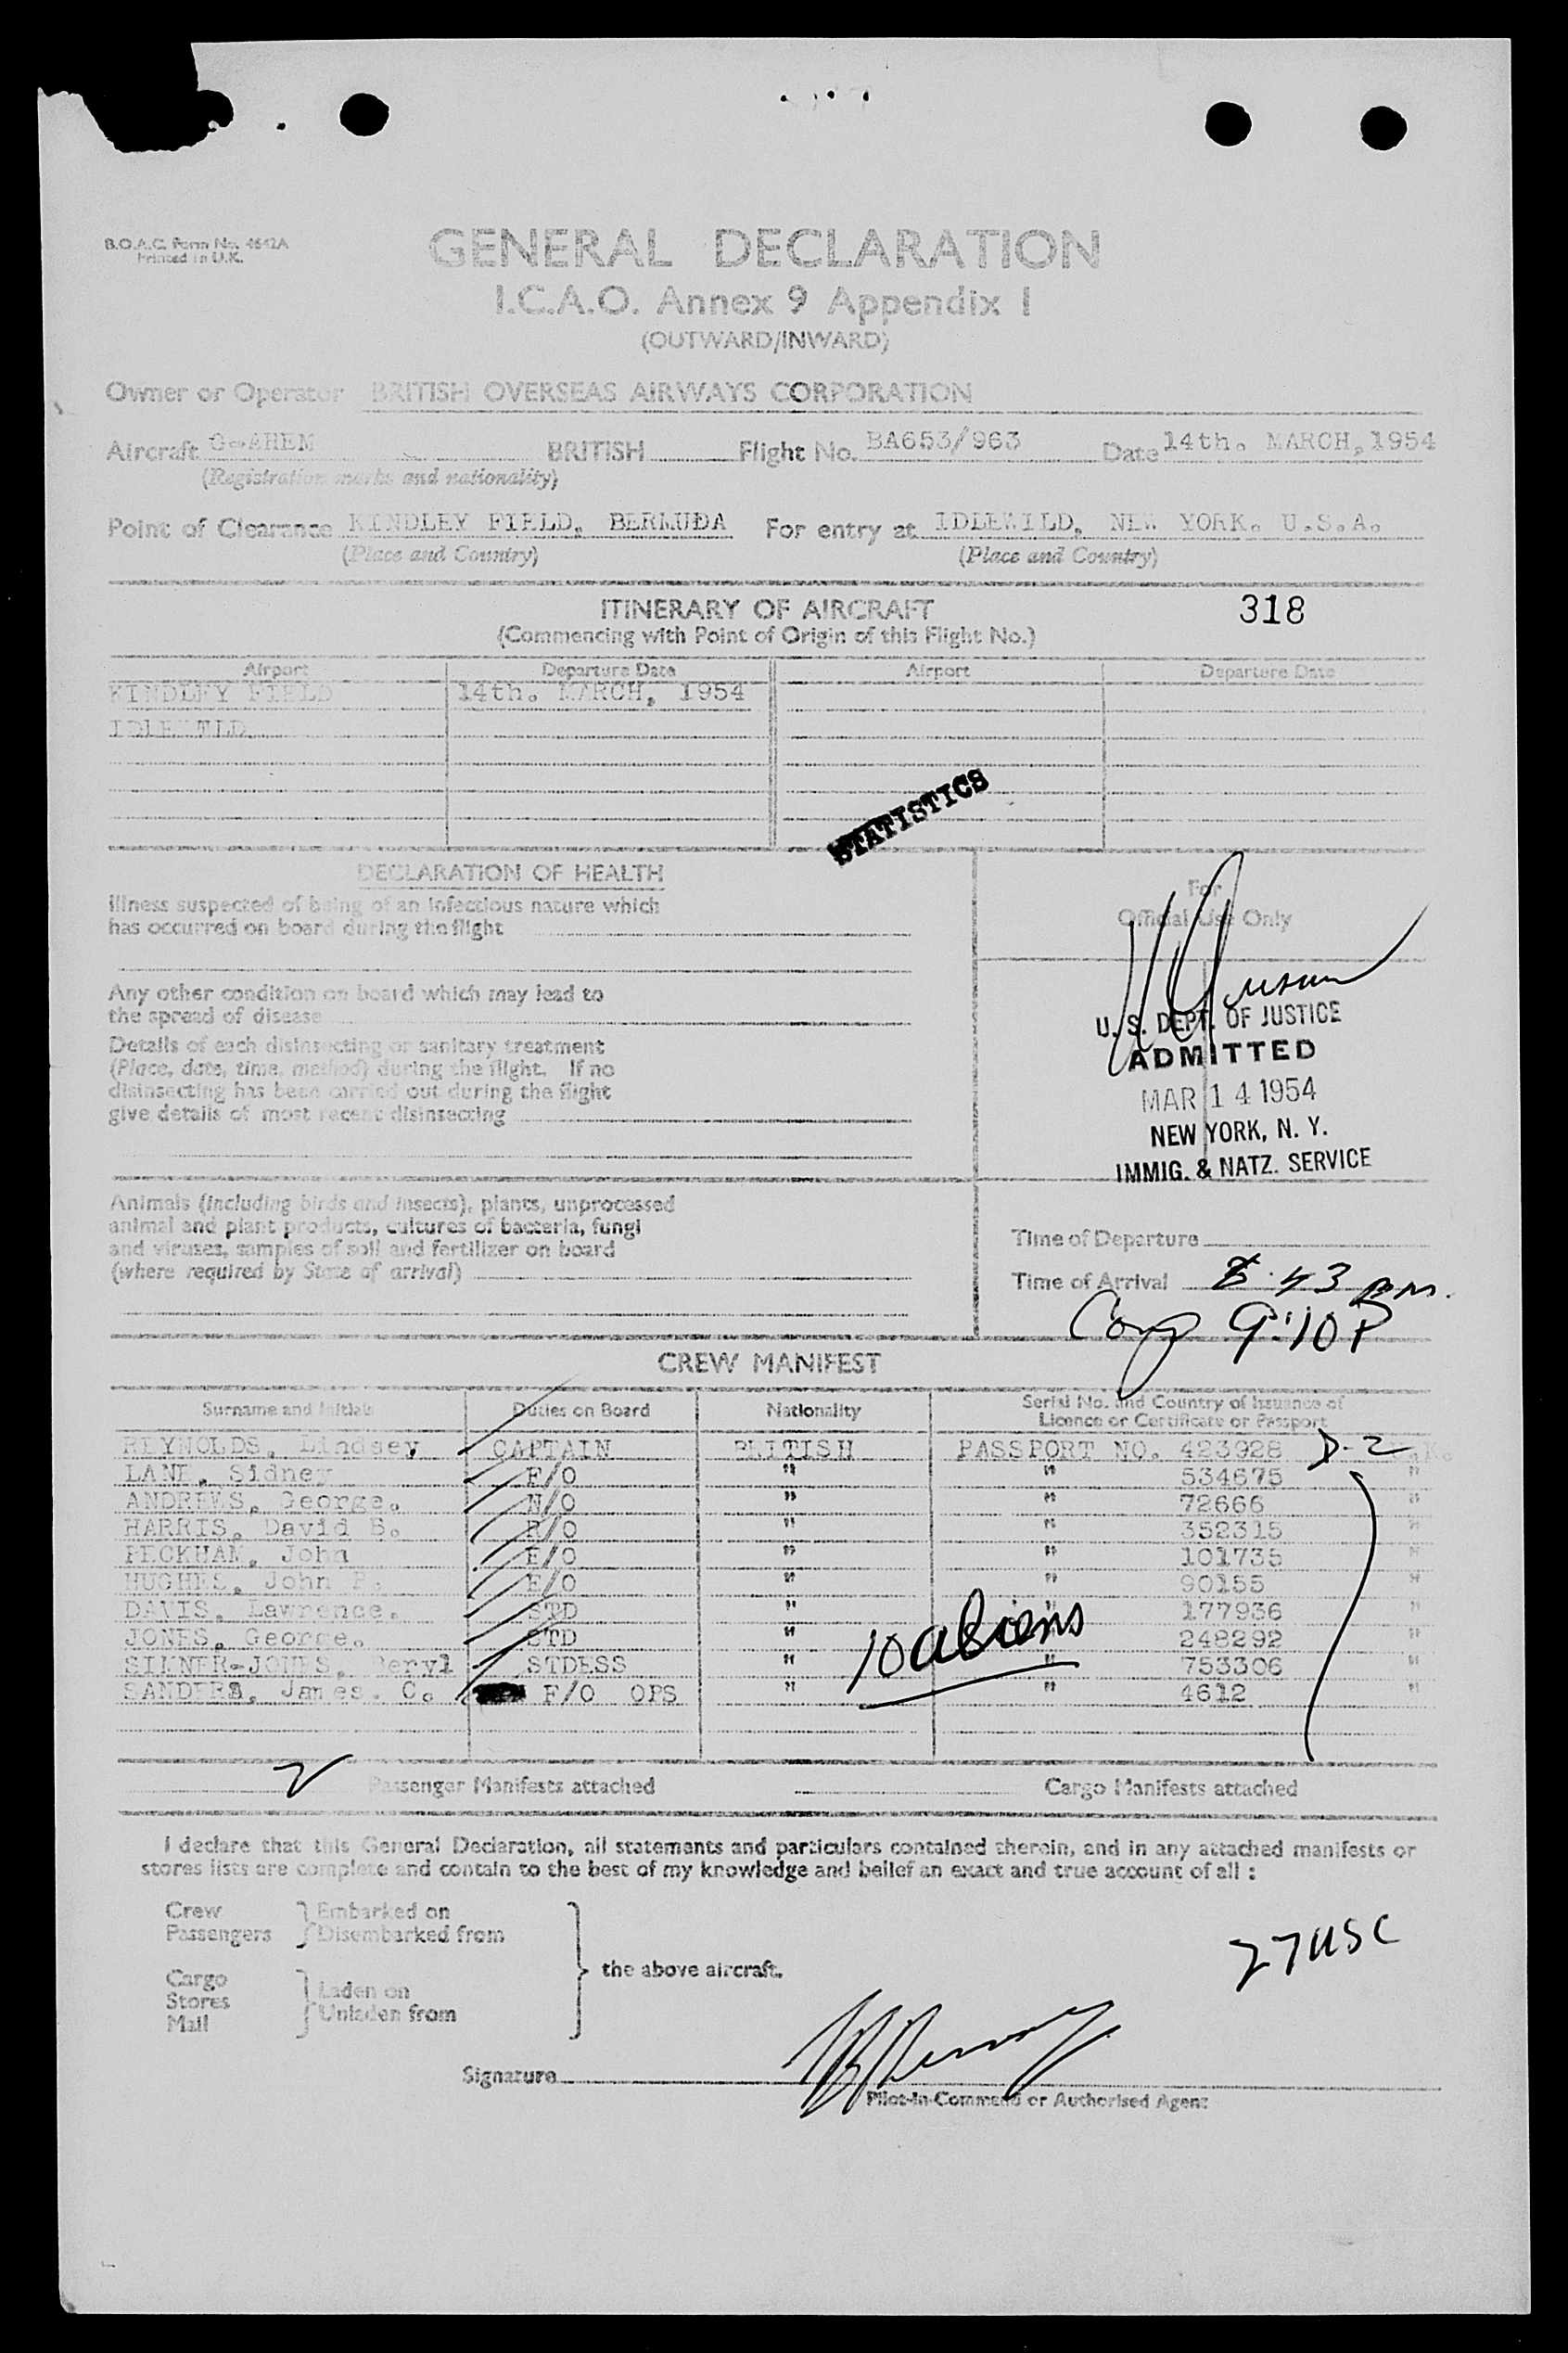 B.O.A.C. Form No. 4642A
Printed in U.K.
GENERAL DECLARATION
I.C.A.O. Annex 9 Appendix I
(OUTWARD/INWARD)
Owner or Operator BRITISH OVERSEAS AIRWAYS CORPORATION
Aircraft G-AHEM BRITISH Flight No. BA653/963 Date 14th. MARCH, 1954
(Registration marks and nationality)
Point of Clearance KINDLEY FIELD, BERMUDA For entry at IDLEWILD, NEW YORK. U.S.A.
(Place and Country) (Place and Country)
ITINERARY OF AIRCRAFT 318
(Commencing with Point of Origin of this Flight No.)
Airport Departure Date Airport Departure Date
KINDLEY FIELD 14th. MARCH, 1954
IDLEWILD
STATISTICS
DECLARATION OF HEALTH
Illness suspected of being of an infectious nature which
has occurred on board during the flight
Any other condition on board which may lead to
the spread of disease
Details of each disinsecting or sanitary treatment
(Place, date, time, method) during the flight. If no
disinsecting has been carried out during the flight
give details of most recent disinsecting
For
Official Use Only
U. S. DEPT. OF JUSTICE
ADMITTED
MAR 14 1954
NEW YORK, N. Y.
IMMIG. & NATZ. SERVICE
Animals (including birds and insects), plants, unprocessed
animal and plant products, cultures of bacteria, fungi
and viruses, samples of soil and fertilizer on board
(where required by State of arrival)
Time of Departure
Time of Arrival 8.43 p.m.
Comp 9:10 P
CREW MANIFEST
Surname and Initials Duties on Board Nationality Serial No. and Country of Issuance of
Licence or Certificate or Passport
REYNOLDS, Lindsey CAPTAIN BRITISH PASSPORT NO. 423928 D-2
LANE, Sidney F/O " " 534675 "
ANDREWS, George. N/O " " 72666 "
HARRIS, David B. R/O " " 352315 "
PECKHAM, John E/O " " 101735 "
HUGHES, John P. E/O " " 90155 "
DAVIS, Lawrence. STD " " 177936 "
JONES, George. STD " " 248292 "
SINNER-JONES, Beryl STDESS " " 753306 "
SANDERS, James. C. F/O OPS " " 4612 "
10 aliens
2 Passenger Manifests attached Cargo Manifests attached
I declare that this General Declaration, all statements and particulars contained therein, and in any attached manifests or
stores lists are complete and contain to the best of my knowledge and belief an exact and true account of all :
Crew Embarked on
Passengers Disembarked from
the above aircraft.
Cargo Laden on
Stores Unladen from
Mail
27 USC
Signature
Pilot-in-Command or Authorised Agent